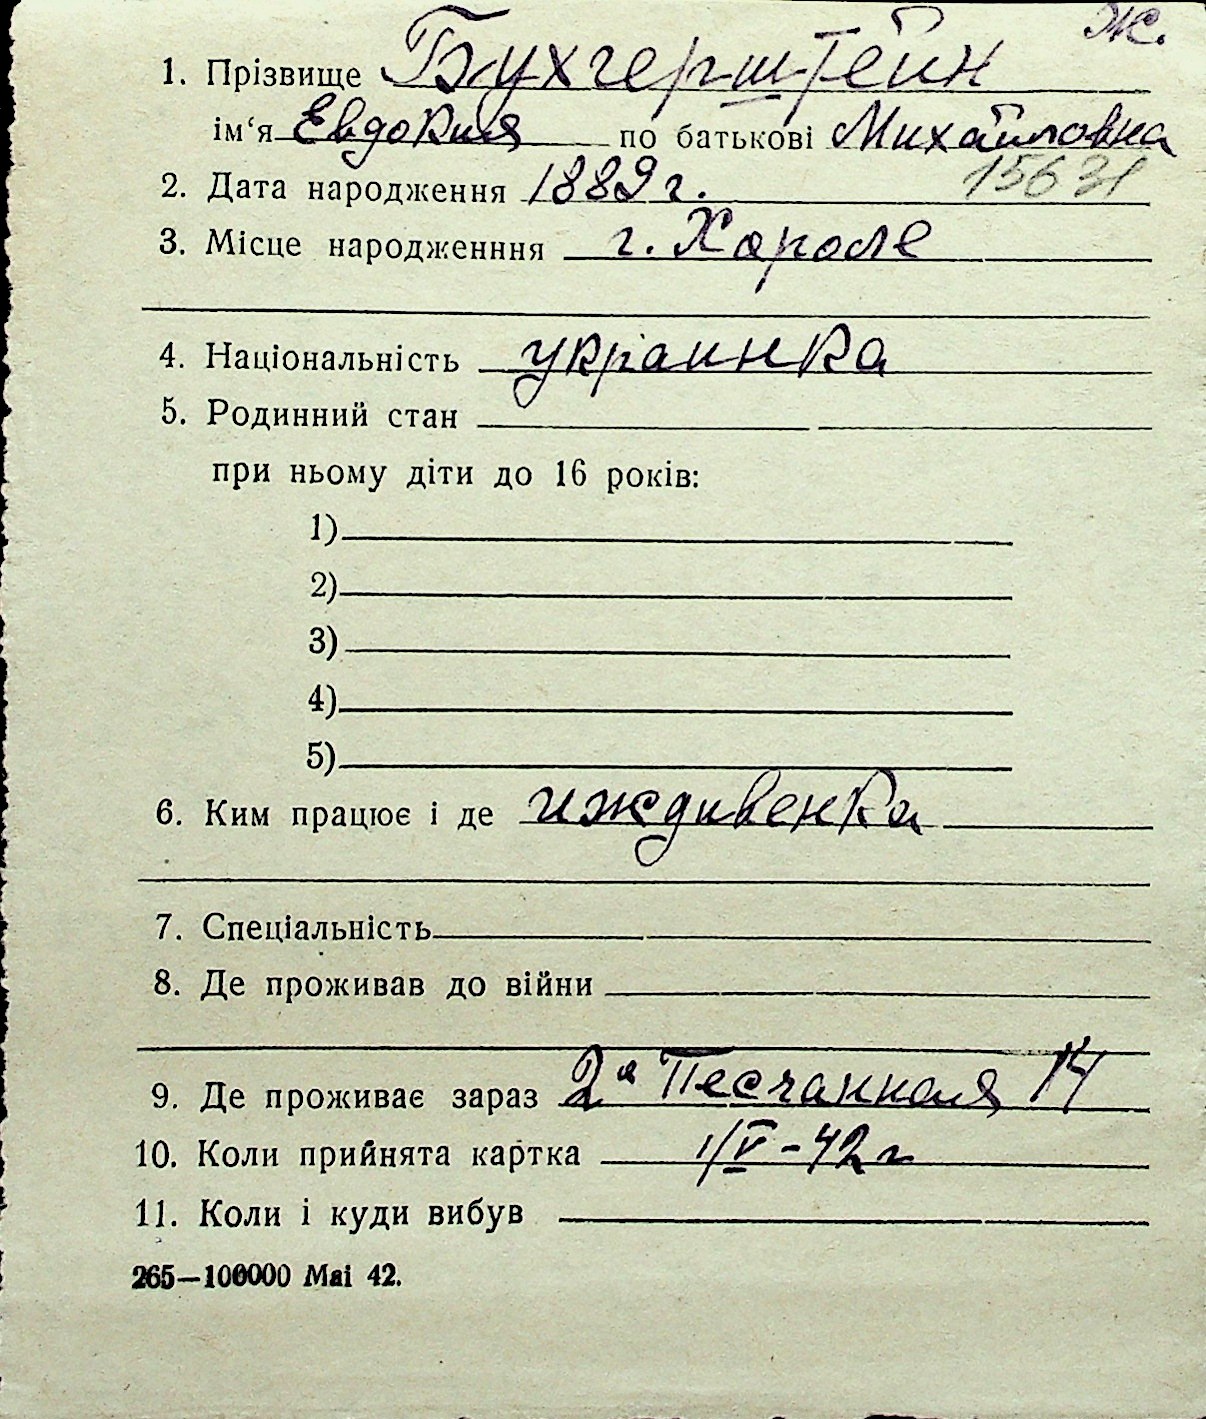 Ж.
1. Прізвище Бухгерштейн
ім‘я Евдокия по батькові Михайловна
2. Дата народження 1889 г. 15631
3. Місце народженння г. Хороле
4. Національність украинка
5. Родинний стан
при ньому діти до 16 років:
1)
2)
3)
4)
5)
6. Ким працює і де иждивенка
7. Спеціальність
8. Де проживав до війни
9. Де проживає зараз 2я Песчанная 14
10. Коли прийнята картка 1/V - 42 г
11. Коли і куди вибув
265—100000 Mai 42.